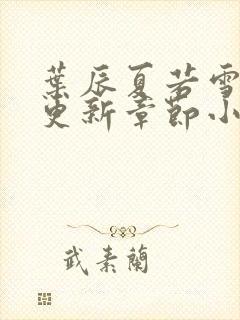 葉辰夏若雪
更新章節小
武素蘭